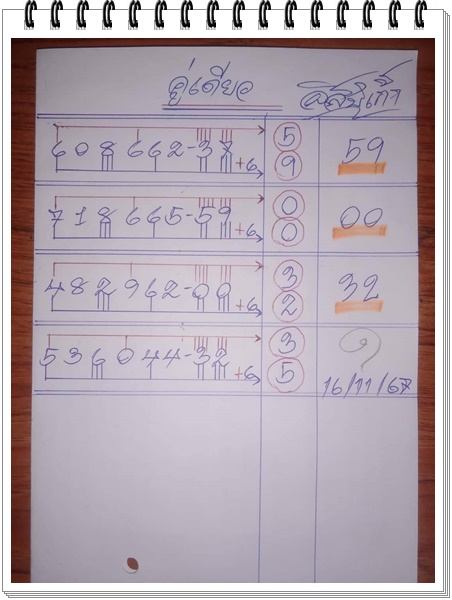 คู่เดียว
608662-37 +6 5 9 59
718665-59 +6 0 0 00
482962-00 +6 3 2 32
536044-32 +6 3 5
16/11/67